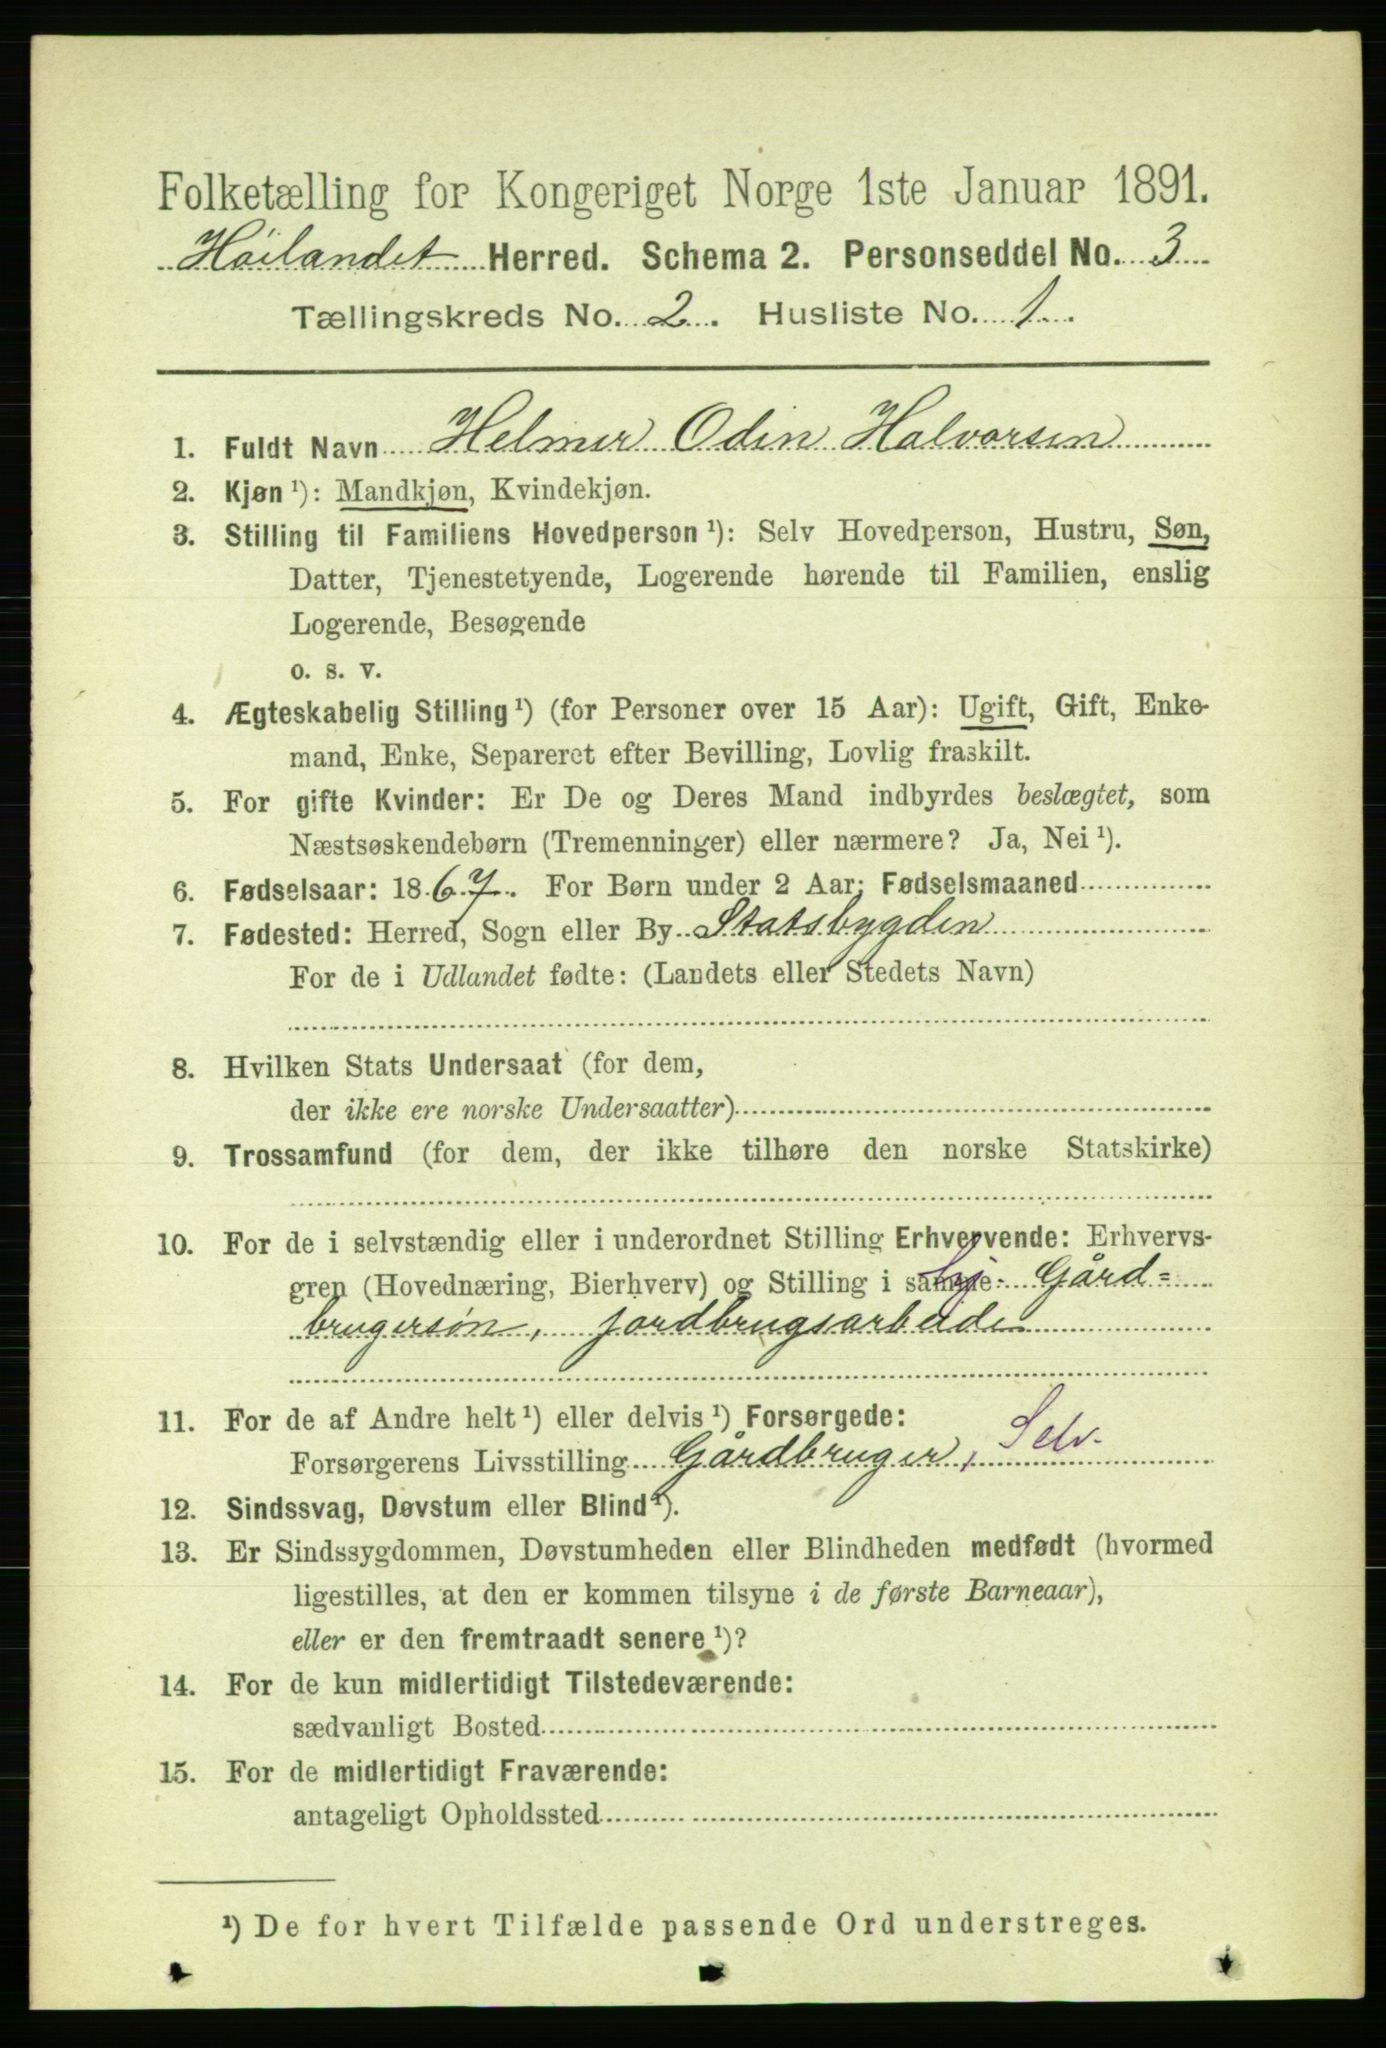 Folketælling for Kongeriget Norge 1ste Januar 1891.
Høilandet Herred. Schema 2. Personseddel No. 3
Tællingskreds No. 2. Husliste No. 1.
1. Fuldt Navn Helmer Odin Halvorsen
2. Kjøn ¹): Mandkjøn, Kvindekjøn.
3. Stilling til Familiens Hovedperson ¹): Selv Hovedperson, Hustru, Søn,
Datter, Tjenestetyende, Logerende hørende til Familien, enslig
Logerende, Besøgende
o. s. v.
4. Ægteskabelig Stilling ¹) (for Personer over 15 Aar): Ugift, Gift, Enke-
mand, Enke, Separeret efter Bevilling, Lovlig fraskilt.
5. For gifte Kvinder: Er De og Deres Mand indbyrdes beslægtet, som
Næstsøskendebørn (Tremenninger) eller nærmere? Ja, Nei ¹).
6. Fødselsaar: 1867. For Børn under 2 Aar: Fødselsmaaned
7. Fødested: Herred, Sogn eller By Statsbygden
For de i Udlandet fødte: (Landets eller Stedets Navn)
8. Hvilken Stats Undersaat (for dem,
der ikke ere norske Undersaatter)
9. Trossamfund (for dem, der ikke tilhøre den norske Statskirke)
10. For de i selvstændig eller i underordnet Stilling Erhvervende: Erhvervs-
gren (Hovednæring, Bierhverv) og Stilling i samme Gård=
brugersøn, jordbrugsarbeide
11. For de af Andre helt ¹) eller delvis ¹) Forsørgede:
Forsørgerens Livsstilling Gårdbruger, Selv.
12. Sindssvag, Døvstum eller Blind ¹).
13. Er Sindssygdommen, Døvstumheden eller Blindheden medfødt (hvormed
ligestilles, at den er kommen tilsyne i de første Barneaar),
eller er den fremtraadt senere ¹)?
14. For de kun midlertidigt Tilstedeværende:
sædvanligt Bosted
15. For de midlertidigt Fraværende:
antageligt Opholdssted
¹) De for hvert Tilfælde passende Ord understreges.